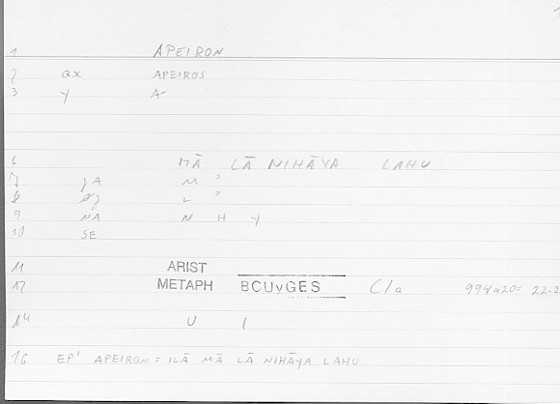 1 APEIRON
2 ax APEIROS
3 y A-
6 MĀ LĀ NIHĀYA LAHU
7 JA M ʾ
8 L ʾ
9 NA N H Y
10 SE
11 ARIST
12 METAPH BCUvGES C/a 994a20= 22.2
14 U I
16 EP' APEIRON = ILĀ MĀ LĀ NIHĀYA LAHU